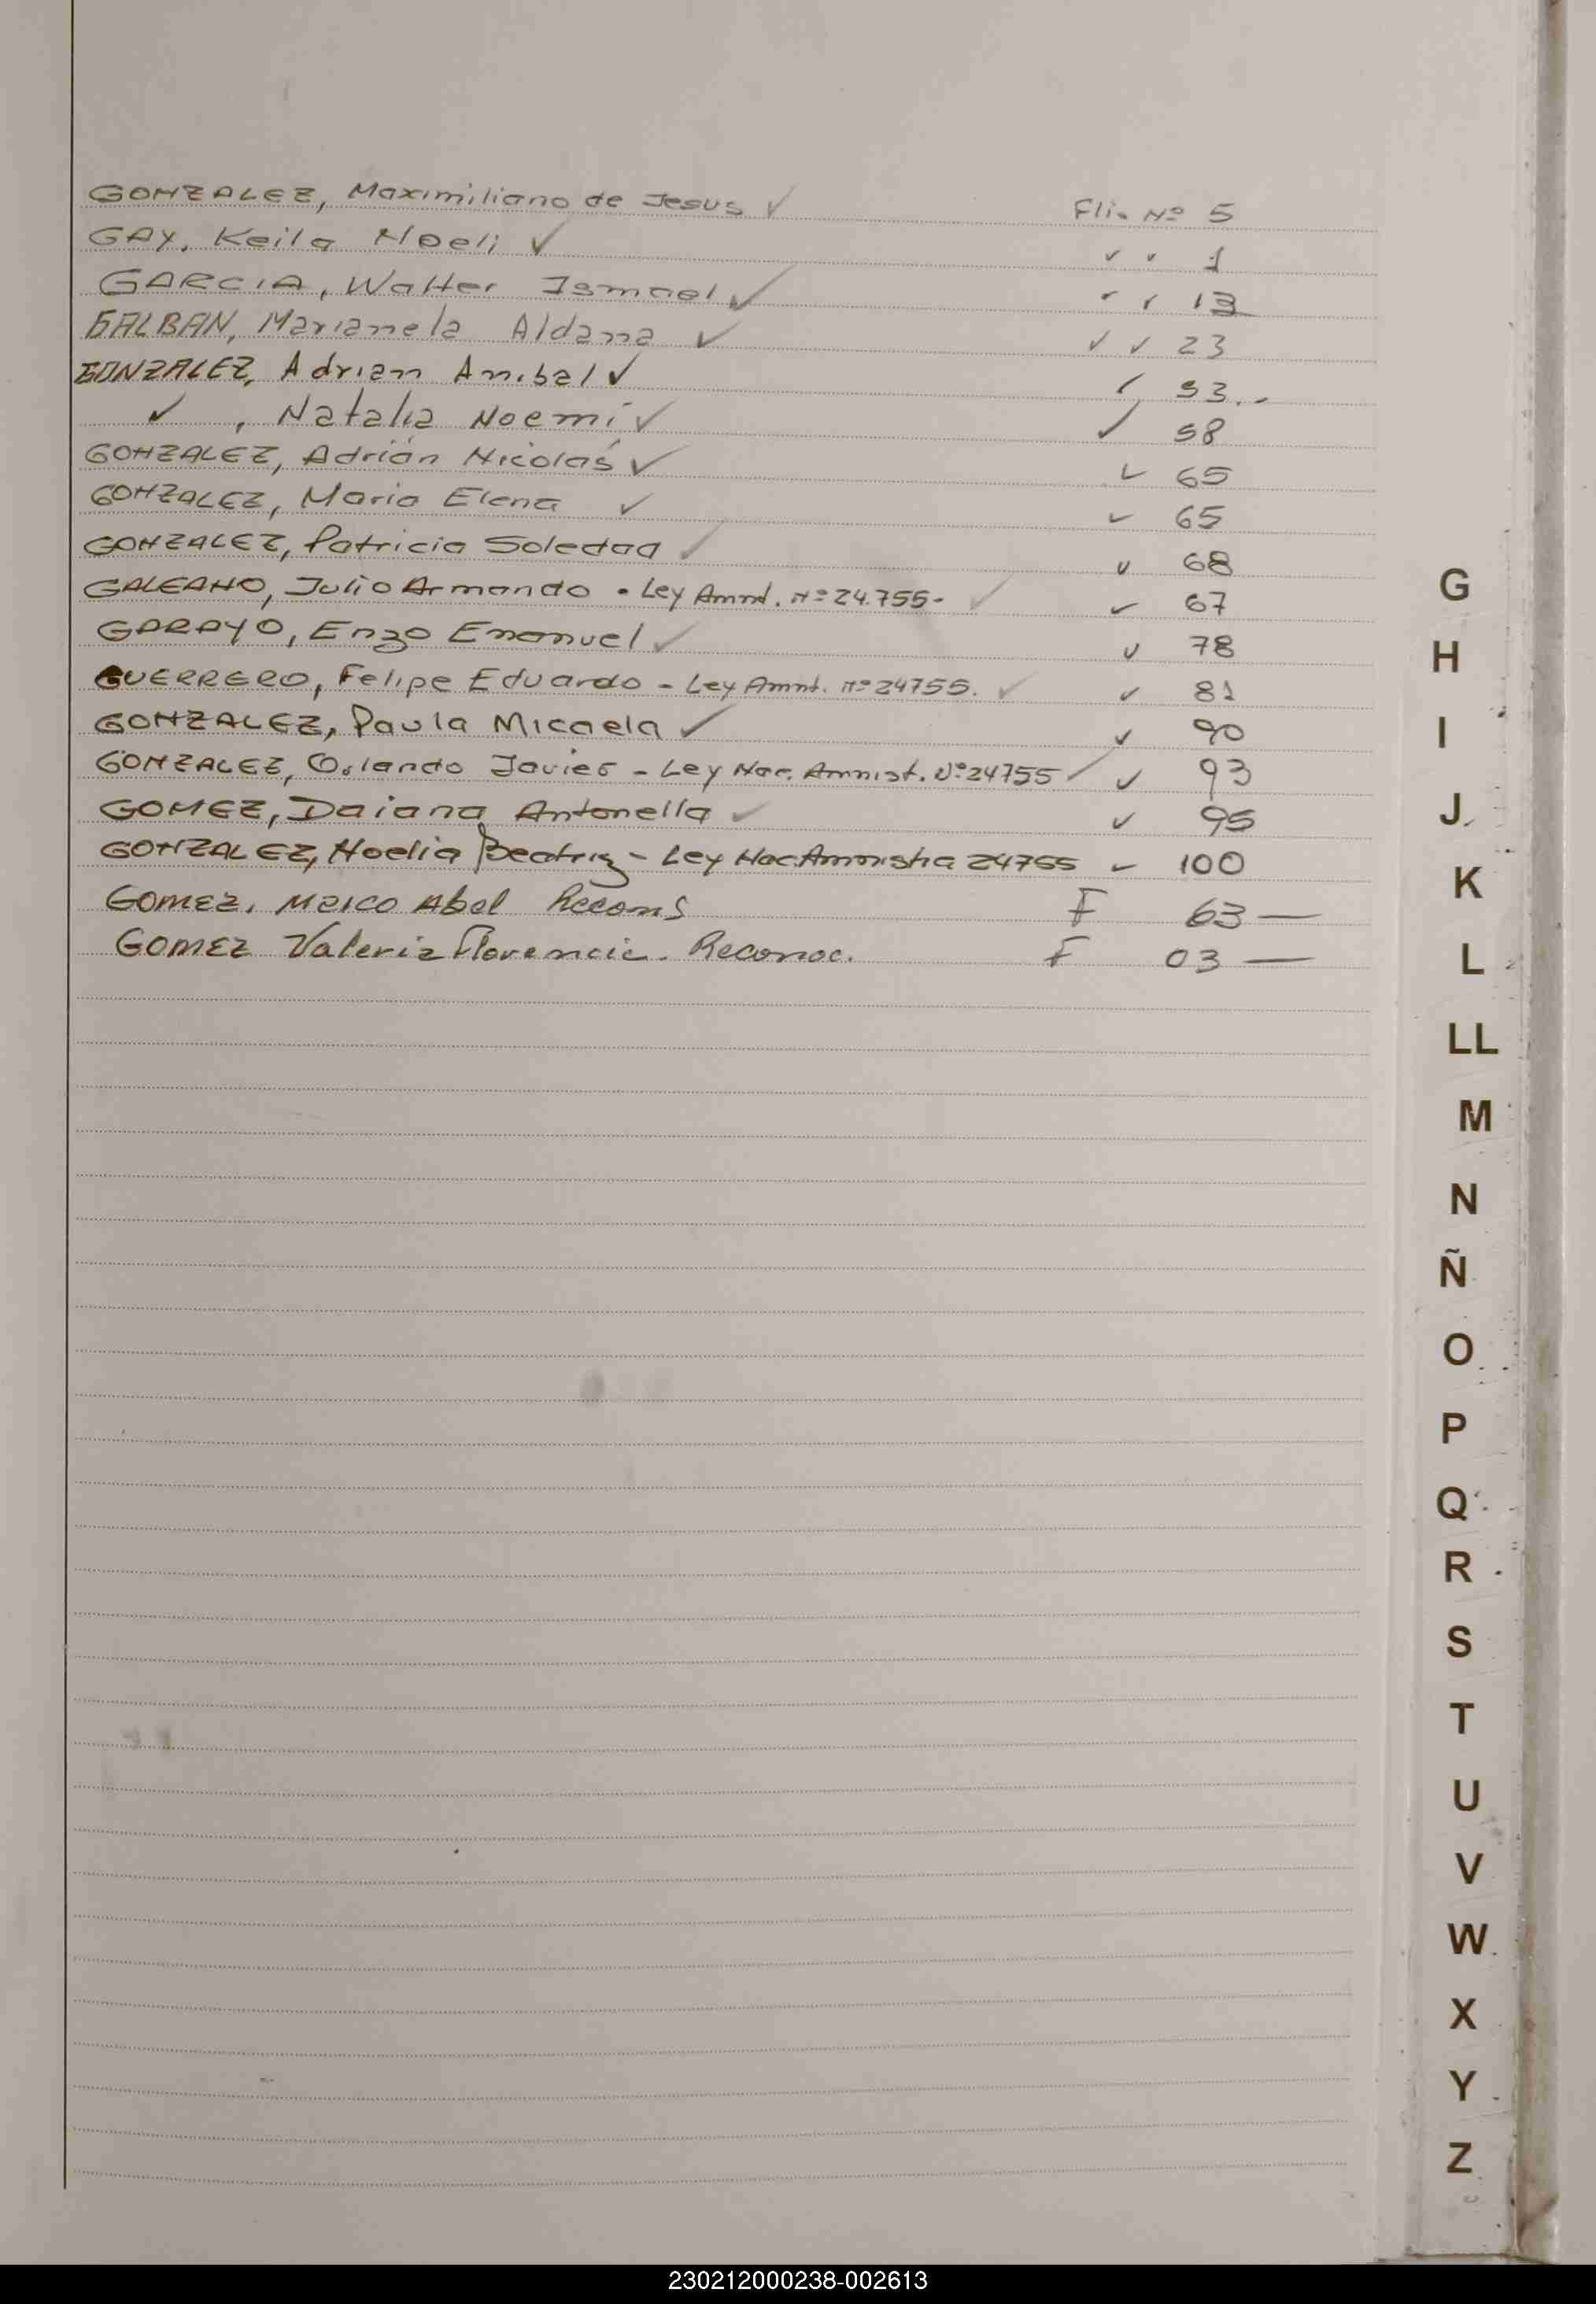 GONZALEZ, Maximiliano de Jesus ✓ Flio Nº 5
GAY, Keila Noeli ✓ ✓ ✓ 1
GARCIA, Walter Ismael ✓ ✓ ✓ 13
GALBAN, Marianela Aldana ✓ ✓ ✓ 23
GONZALEZ, Adrian Anibal ✓ ✓ 53
✓ , Natalia Noemí ✓ ✓ 58
GONZALEZ, Adrián Nicolás ✓ ✓ 65
GONZALEZ, Maria Elena ✓ ✓ 65
GONZALEZ, Patricia Soledad ✓ ✓ 68
GALEANO, Julio Armando - Ley Amnt. Nº 24.755- ✓ ✓ 67
GARAYO, Enzo Emanuel ✓ ✓ 78
GUERRERO, Felipe Eduardo - Ley Amnt. Nº 24755. ✓ ✓ 81
GONZALEZ, Paula Micaela ✓ ✓ 90
GONZALEZ, Orlando Javier - Ley Nac. Amnist. Nº 24755 ✓ ✓ 93
GOMEZ, Daiana Antonella ✓ ✓ 95
GONZALEZ, Noelia Beatriz - Ley Nac. Amnistia 24755 ✓ 100
GOMEZ, Marco Abel F 63 —
GOMEZ Valeria Florencia. Reconoc. F 03 —
G
H
I
J
K
L
LL
M
N
Ñ
O
P
Q
R
S
T
U
V
W
X
Y
Z
230212000238-002613